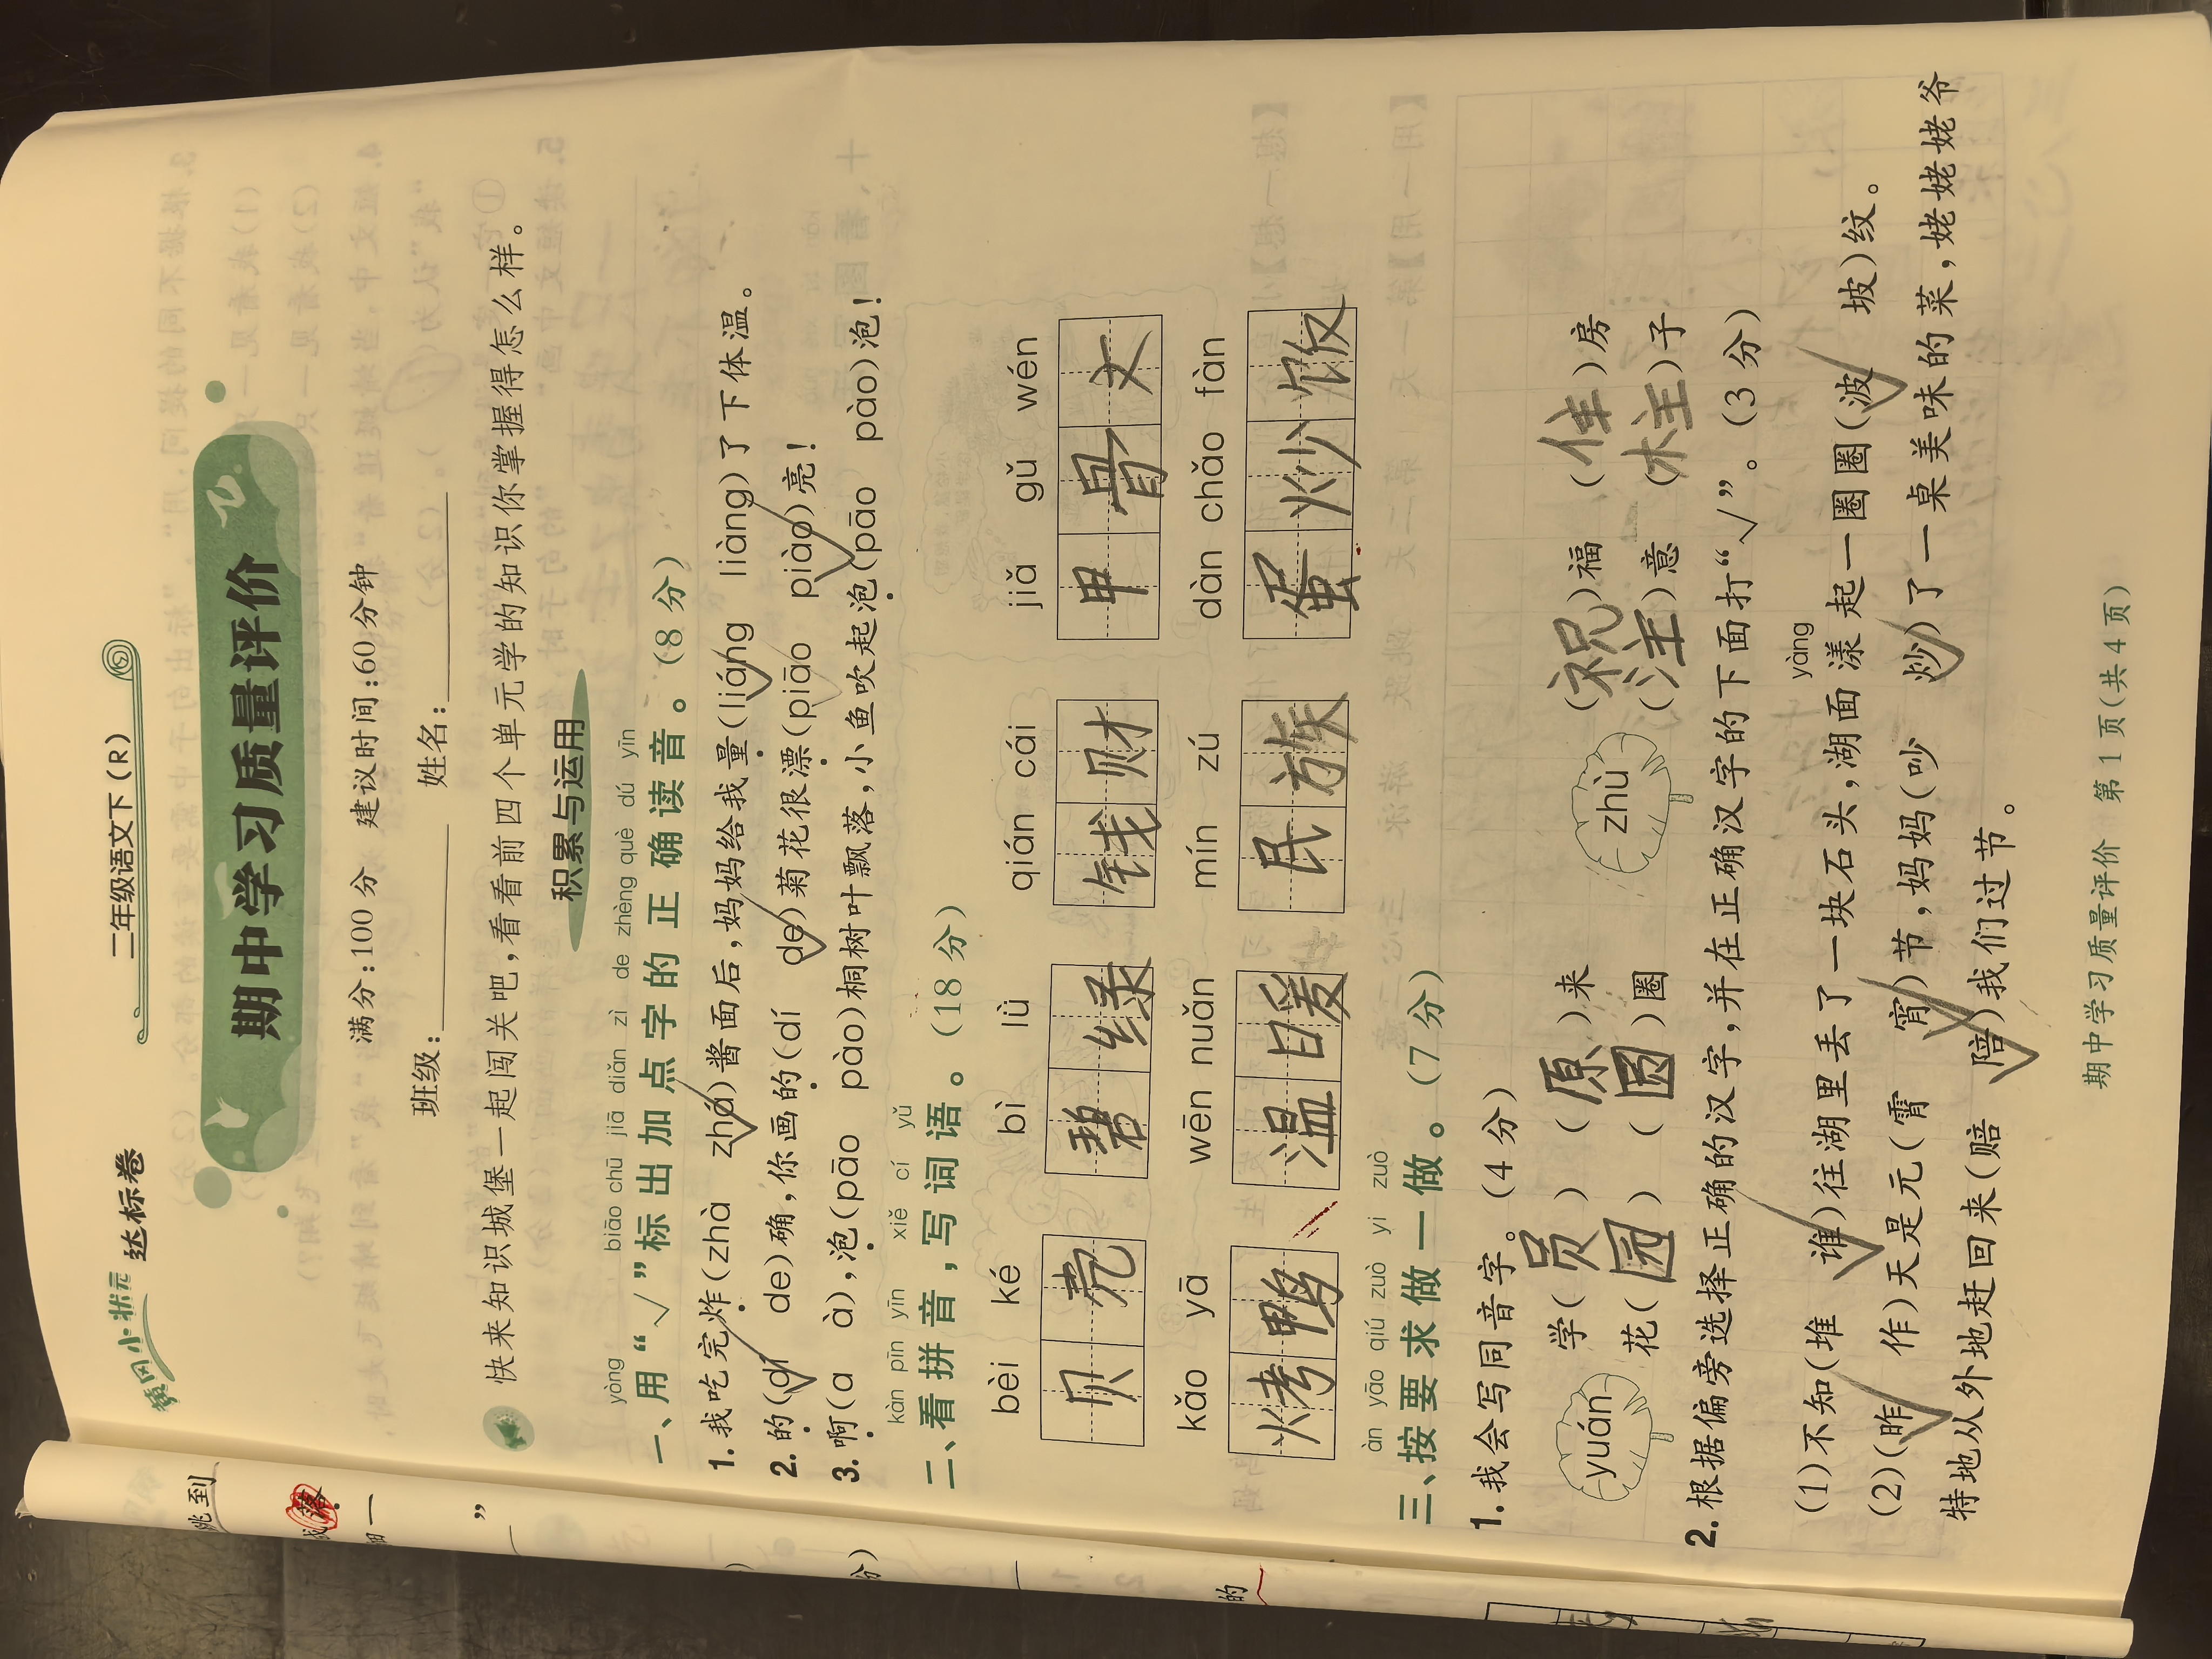 黄冈小状元 达标卷 二年级语文下(R)
期中学习质量评价
满分:100分 建议时间:60分钟
班级: 姓名:
快来知识城堡一起闯关吧,看看前四个单元学的知识你掌握得怎么样。
积累与运用
yòng biāo chū jiā diǎn zì de zhèng què dú yīn
一、用“√”标出加点字的正确读音。(8分)
1.我吃完炸(zhà zhá)酱面后,妈妈给我量(liáng liàng)了下体温。
2.的(dí de)确,你画的(dí de)菊花很漂(piāo piào)亮!
3.啊(a à),泡(pāo pào)桐树叶飘落,小鱼吹起泡(pāo pào)泡!
kàn pīn yīn xiě cí yǔ
二、看拼音,写词语。(18分)
bèi ké bì lǜ qián cái jiǎ gǔ wén
贝壳 碧绿 钱财 甲骨文
kǎo yā wēn nuǎn mín zú dàn chǎo fàn
烤鸭 温暖 民族 蛋炒饭
àn yāo qiú zuò yi zuò
三、按要求做一做。(7分)
1.我会写同音字。(4分)
yuán 学(员) (原)来 zhù (祝)福 (住)房
花(园) (圆)圈 (注)意 (柱)子
2.根据偏旁选择正确的汉字,并在正确汉字的下面打“√”。(3分)
yàng
(1)不知(堆 谁)往湖里丢了一块石头,湖面漾起一圈圈(波 坡)纹。
(2)(昨 作)天是元(霄 宵)节,妈妈(吵 炒)了一桌美味的菜,姥姥姥爷
特地从外地赶回来(赔 陪)我们过节。
期中学习质量评价 第1页(共4页)